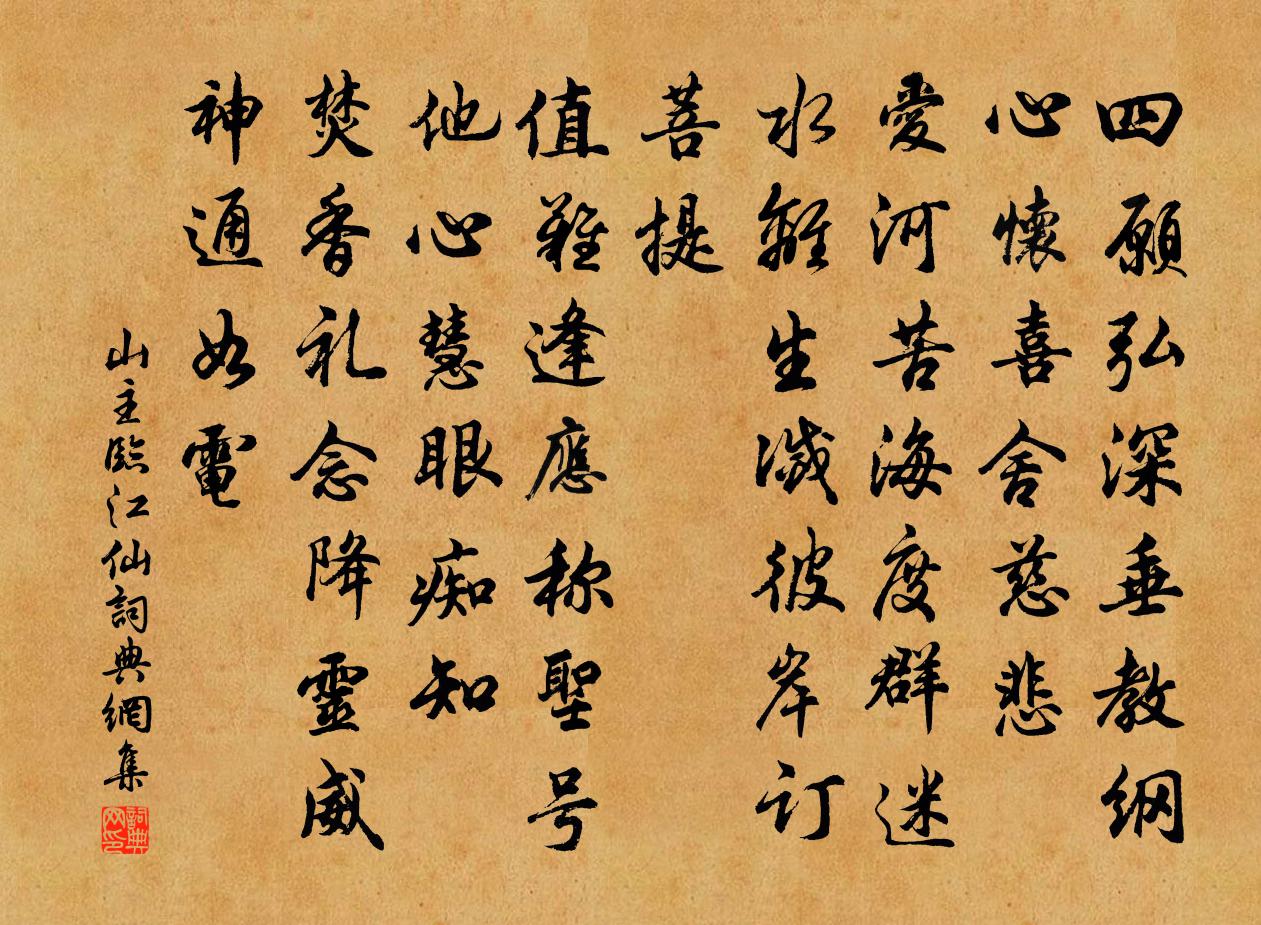 四願弘深垂教纲
心懷喜舍慈悲
愛河苦海度群迷
水離生滅彼岸订
菩提
值難逢應称聖号
他心慧眼痴知
焚香礼念降靈威
神通如電
山主臨江仙詞典網集
詞典网印